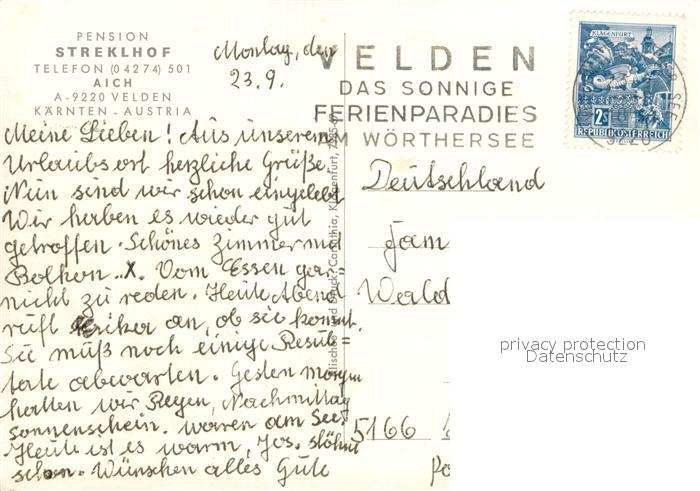 PENSION
STREKLHOF
TELEFON (04274) 501
AICH
A-9220 VELDEN
KÄRNTEN - AUSTRIA
Montag, den
23.9.
VELDEN
DAS SONNIGE
FERIENPARADIES
AM WÖRTHERSEE
KLAGENFURT
2S
REPUBLIK ÖSTERREICH
Meine Lieben! Aus unserem
Urlaubsort herzliche Grüße.
Nun sind wir schon eingelebt
Wir haben es wieder gut
getroffen. Schönes Zimmer mit
Balkon. X. Vom Essen gar=
nicht zu reden. Heute Abend
ruft Erika an, ob sie kommt.
Sie muß noch einige Resul=
tate abwarten. Gestern morgen
hatten wir Regen, Nachmittag
sonnenschein. waren am See.
Heute ist es warm, Jos. stöhnt
schon. Wünschen alles Gute
Deutschland
Fam
Wald
5166
privacy protection
Datenschutz